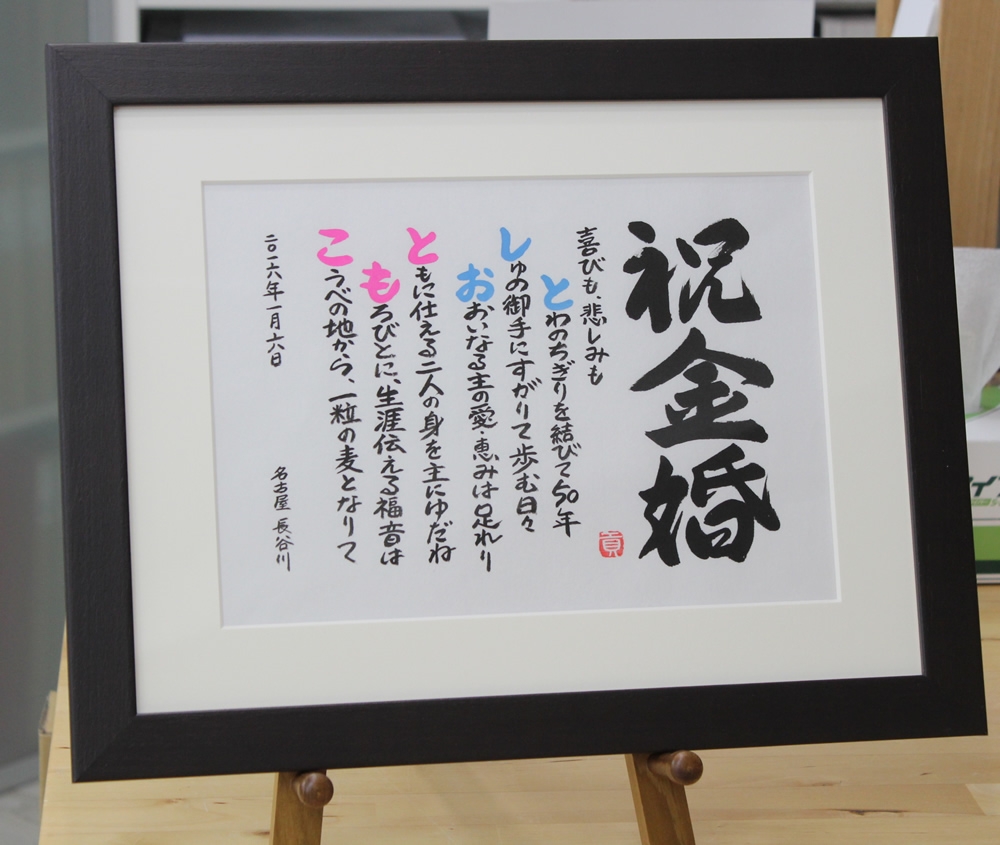 祝金婚
貢
喜びも、悲しみも
とわのちぎりを結びて50年
しゅの御手にすがりて歩む日々
おおいなる主の愛・恵みは足れり
ともに仕える二人の身を主にゆだね
もろびとに、生涯伝える福音は
こうべの地から、一粒の麦となりて
二〇一六年一月六日
名古屋 長谷川